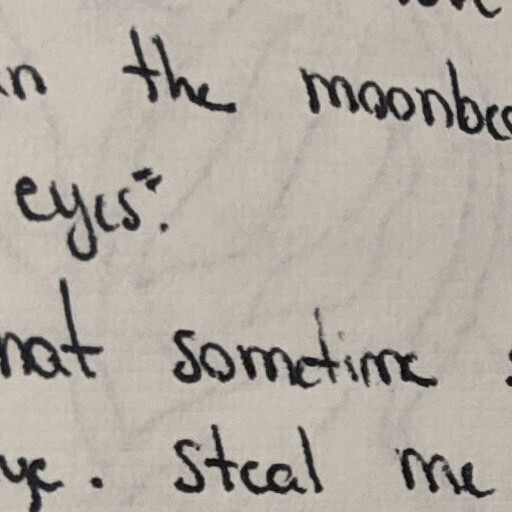 in the moonbea
eyes".
hat sometime s
ye. Steal me